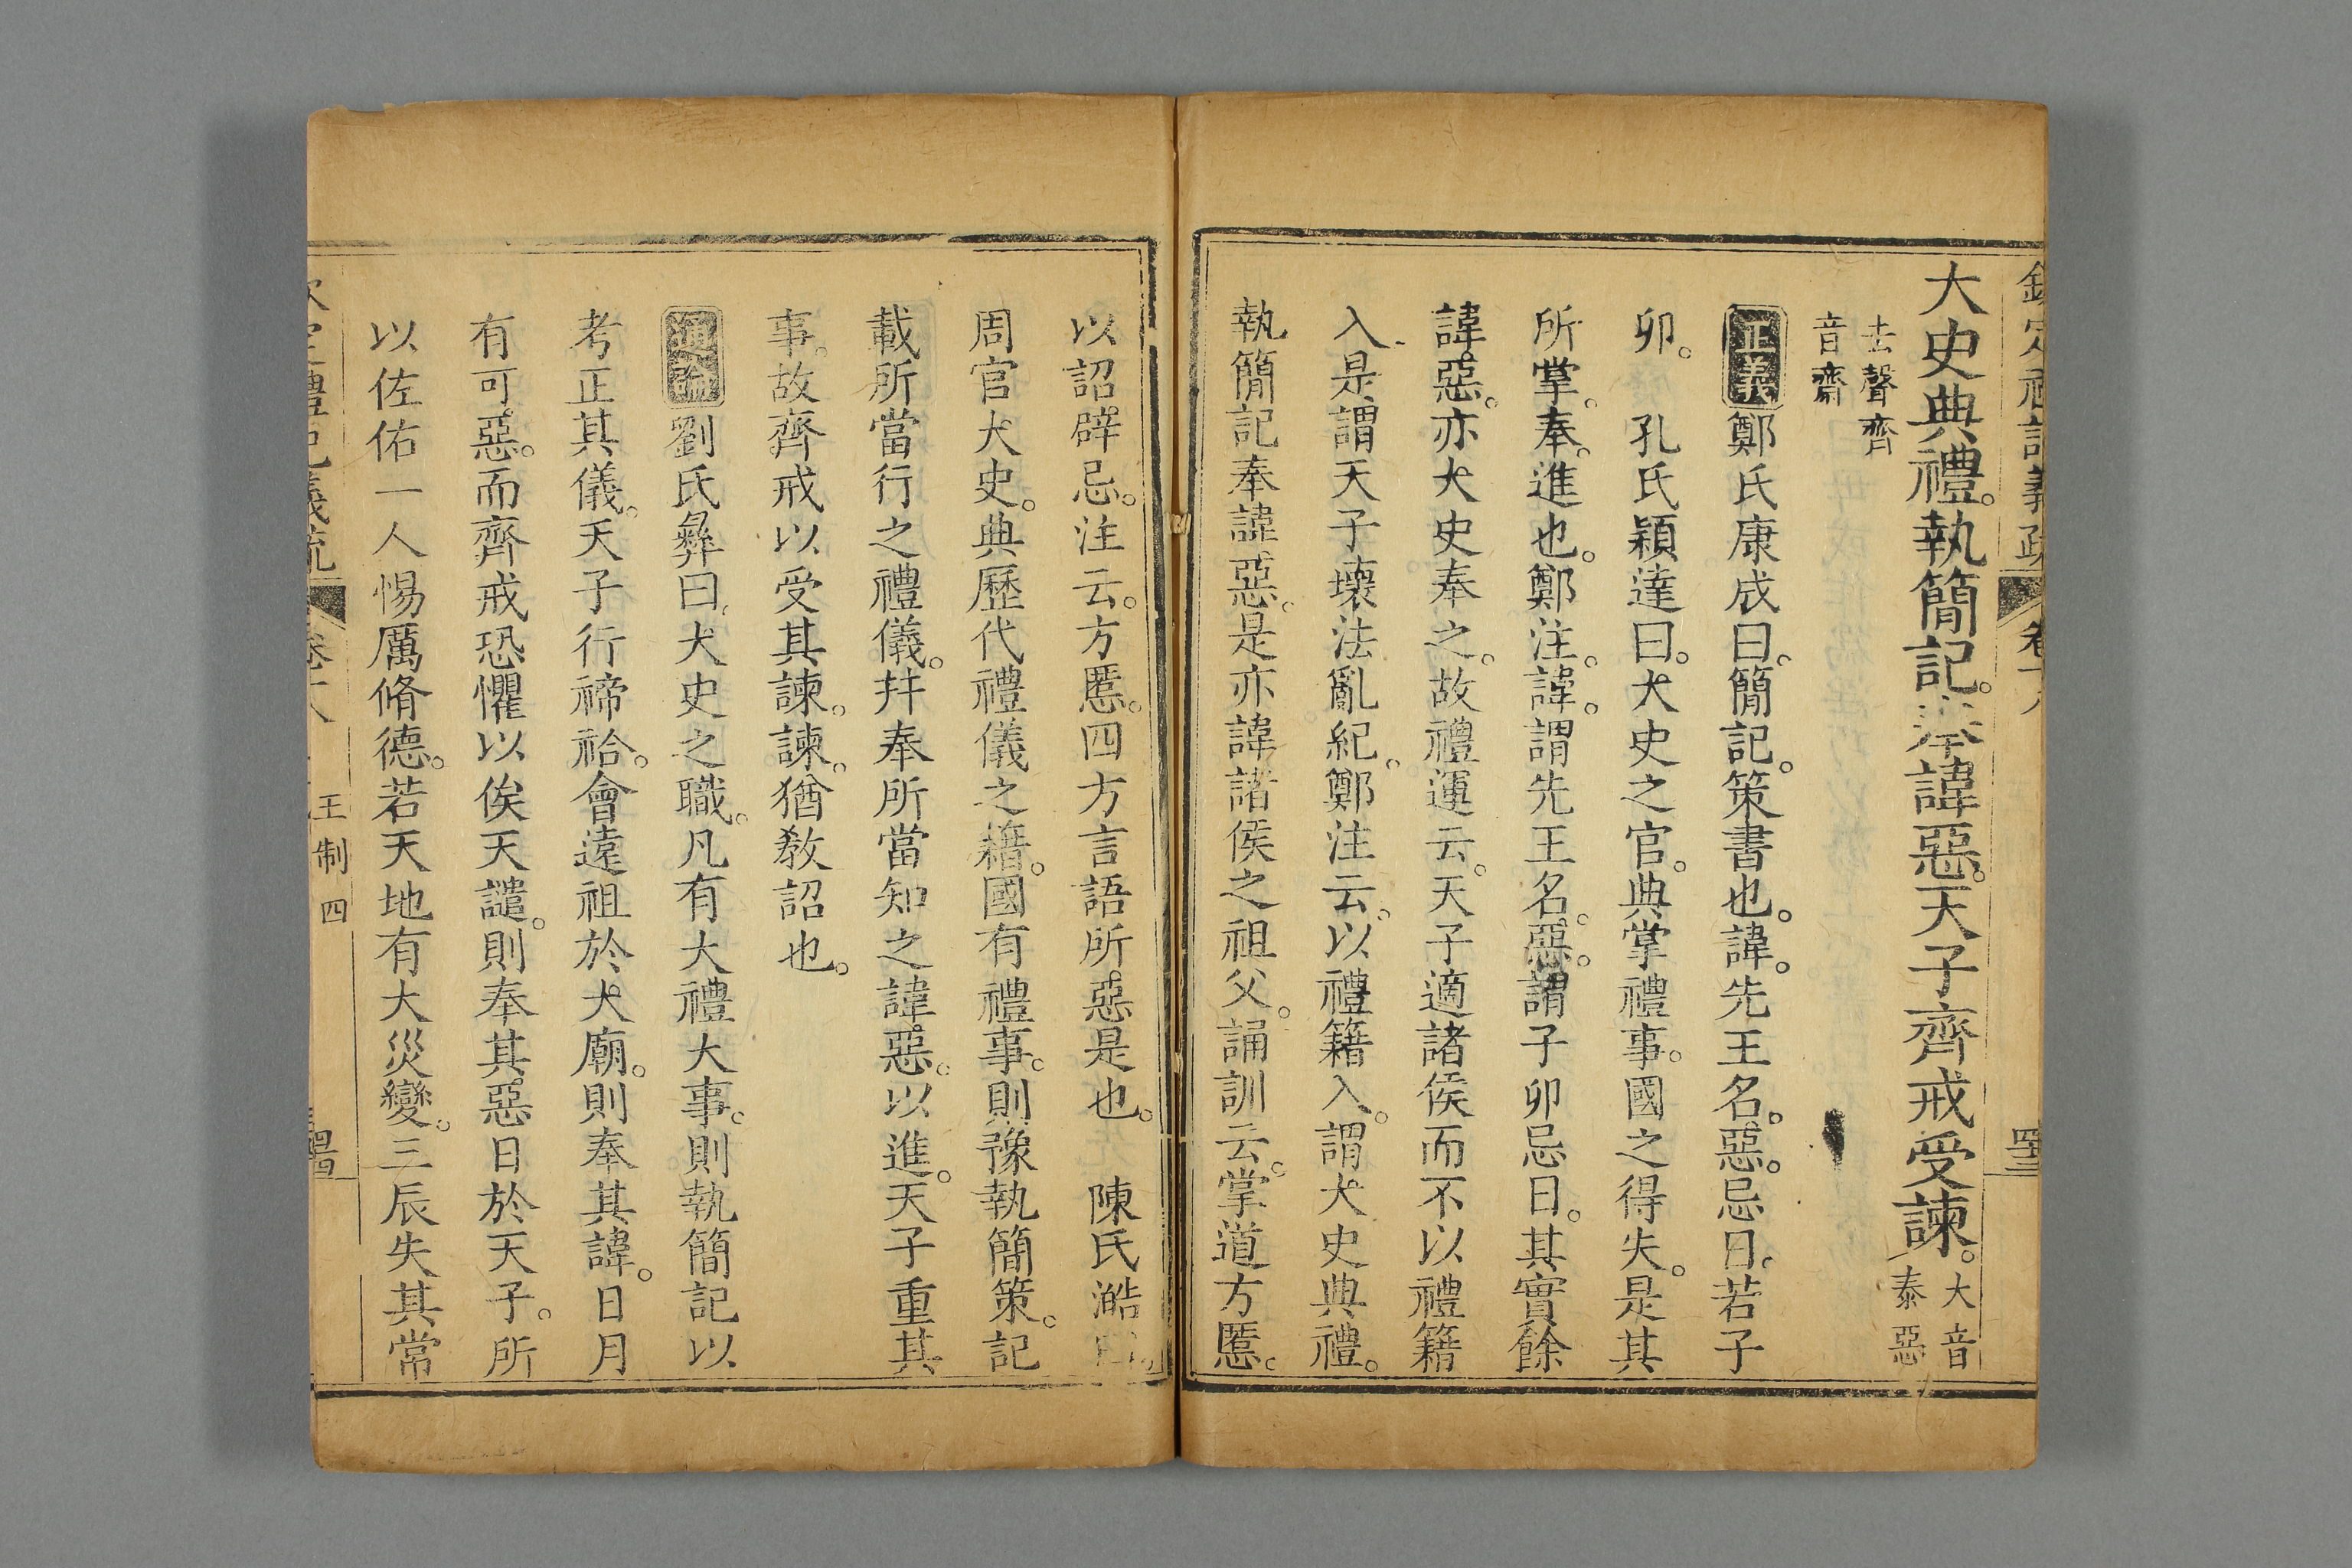 大史典禮。執簡記。奉諱惡。天子齊戒受諫。大音泰惡
去聲齊
音齋
正義鄭氏康成曰。簡記。策書也。諱。先王名。惡。忌日。若子
卯。孔氏穎達曰。大史之官。典掌禮事。國之得失。是其
所掌。奉。進也。鄭注。諱。謂先王名。惡。謂子卯忌日。其實餘
諱惡。亦大史奉之。故禮運云。天子適諸侯而不以禮籍
入。是謂天子壞法亂紀。鄭注云。以禮籍入。謂大史典禮。
執簡記奉諱惡。是亦諱諸侯之祖父。誦訓云。掌道方慝。
以詔辟忌。注云。方慝。四方言語所惡是也。陳氏澔曰。
周官大史。典歷代禮儀之籍。國有禮事。則豫執簡策。記
載所當行之禮儀。幷奉所當知之諱惡。以進。天子重其
事。故齊戒以受其諫。諫。猶敎詔也。
通論劉氏彝曰。大史之職。凡有大禮大事。則執簡記以
考正其儀。天子行禘祫。會遠祖於大廟。則奉其諱。日月
有可惡。而齊戒恐懼以俟天譴。則奉其惡日於天子。所
以佐佑一人惕厲脩德。若天地有大災變。三辰失其常
王制四